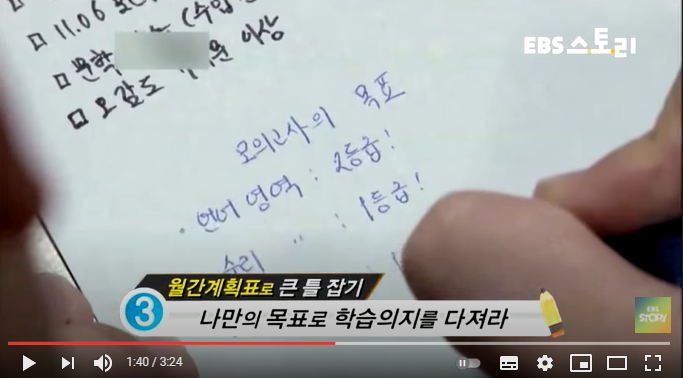 □ 11.06
EBS 스토리
□ 문학
□ 오감도 이상
모의고사의 목표
· 언어 영역 : 2등급!
수리 〃 : 1등급!
월간계획표로 큰 틀 잡기
3 나만의 목표로 학습의지를 다져라
EBS STORY
1:40 / 3:24